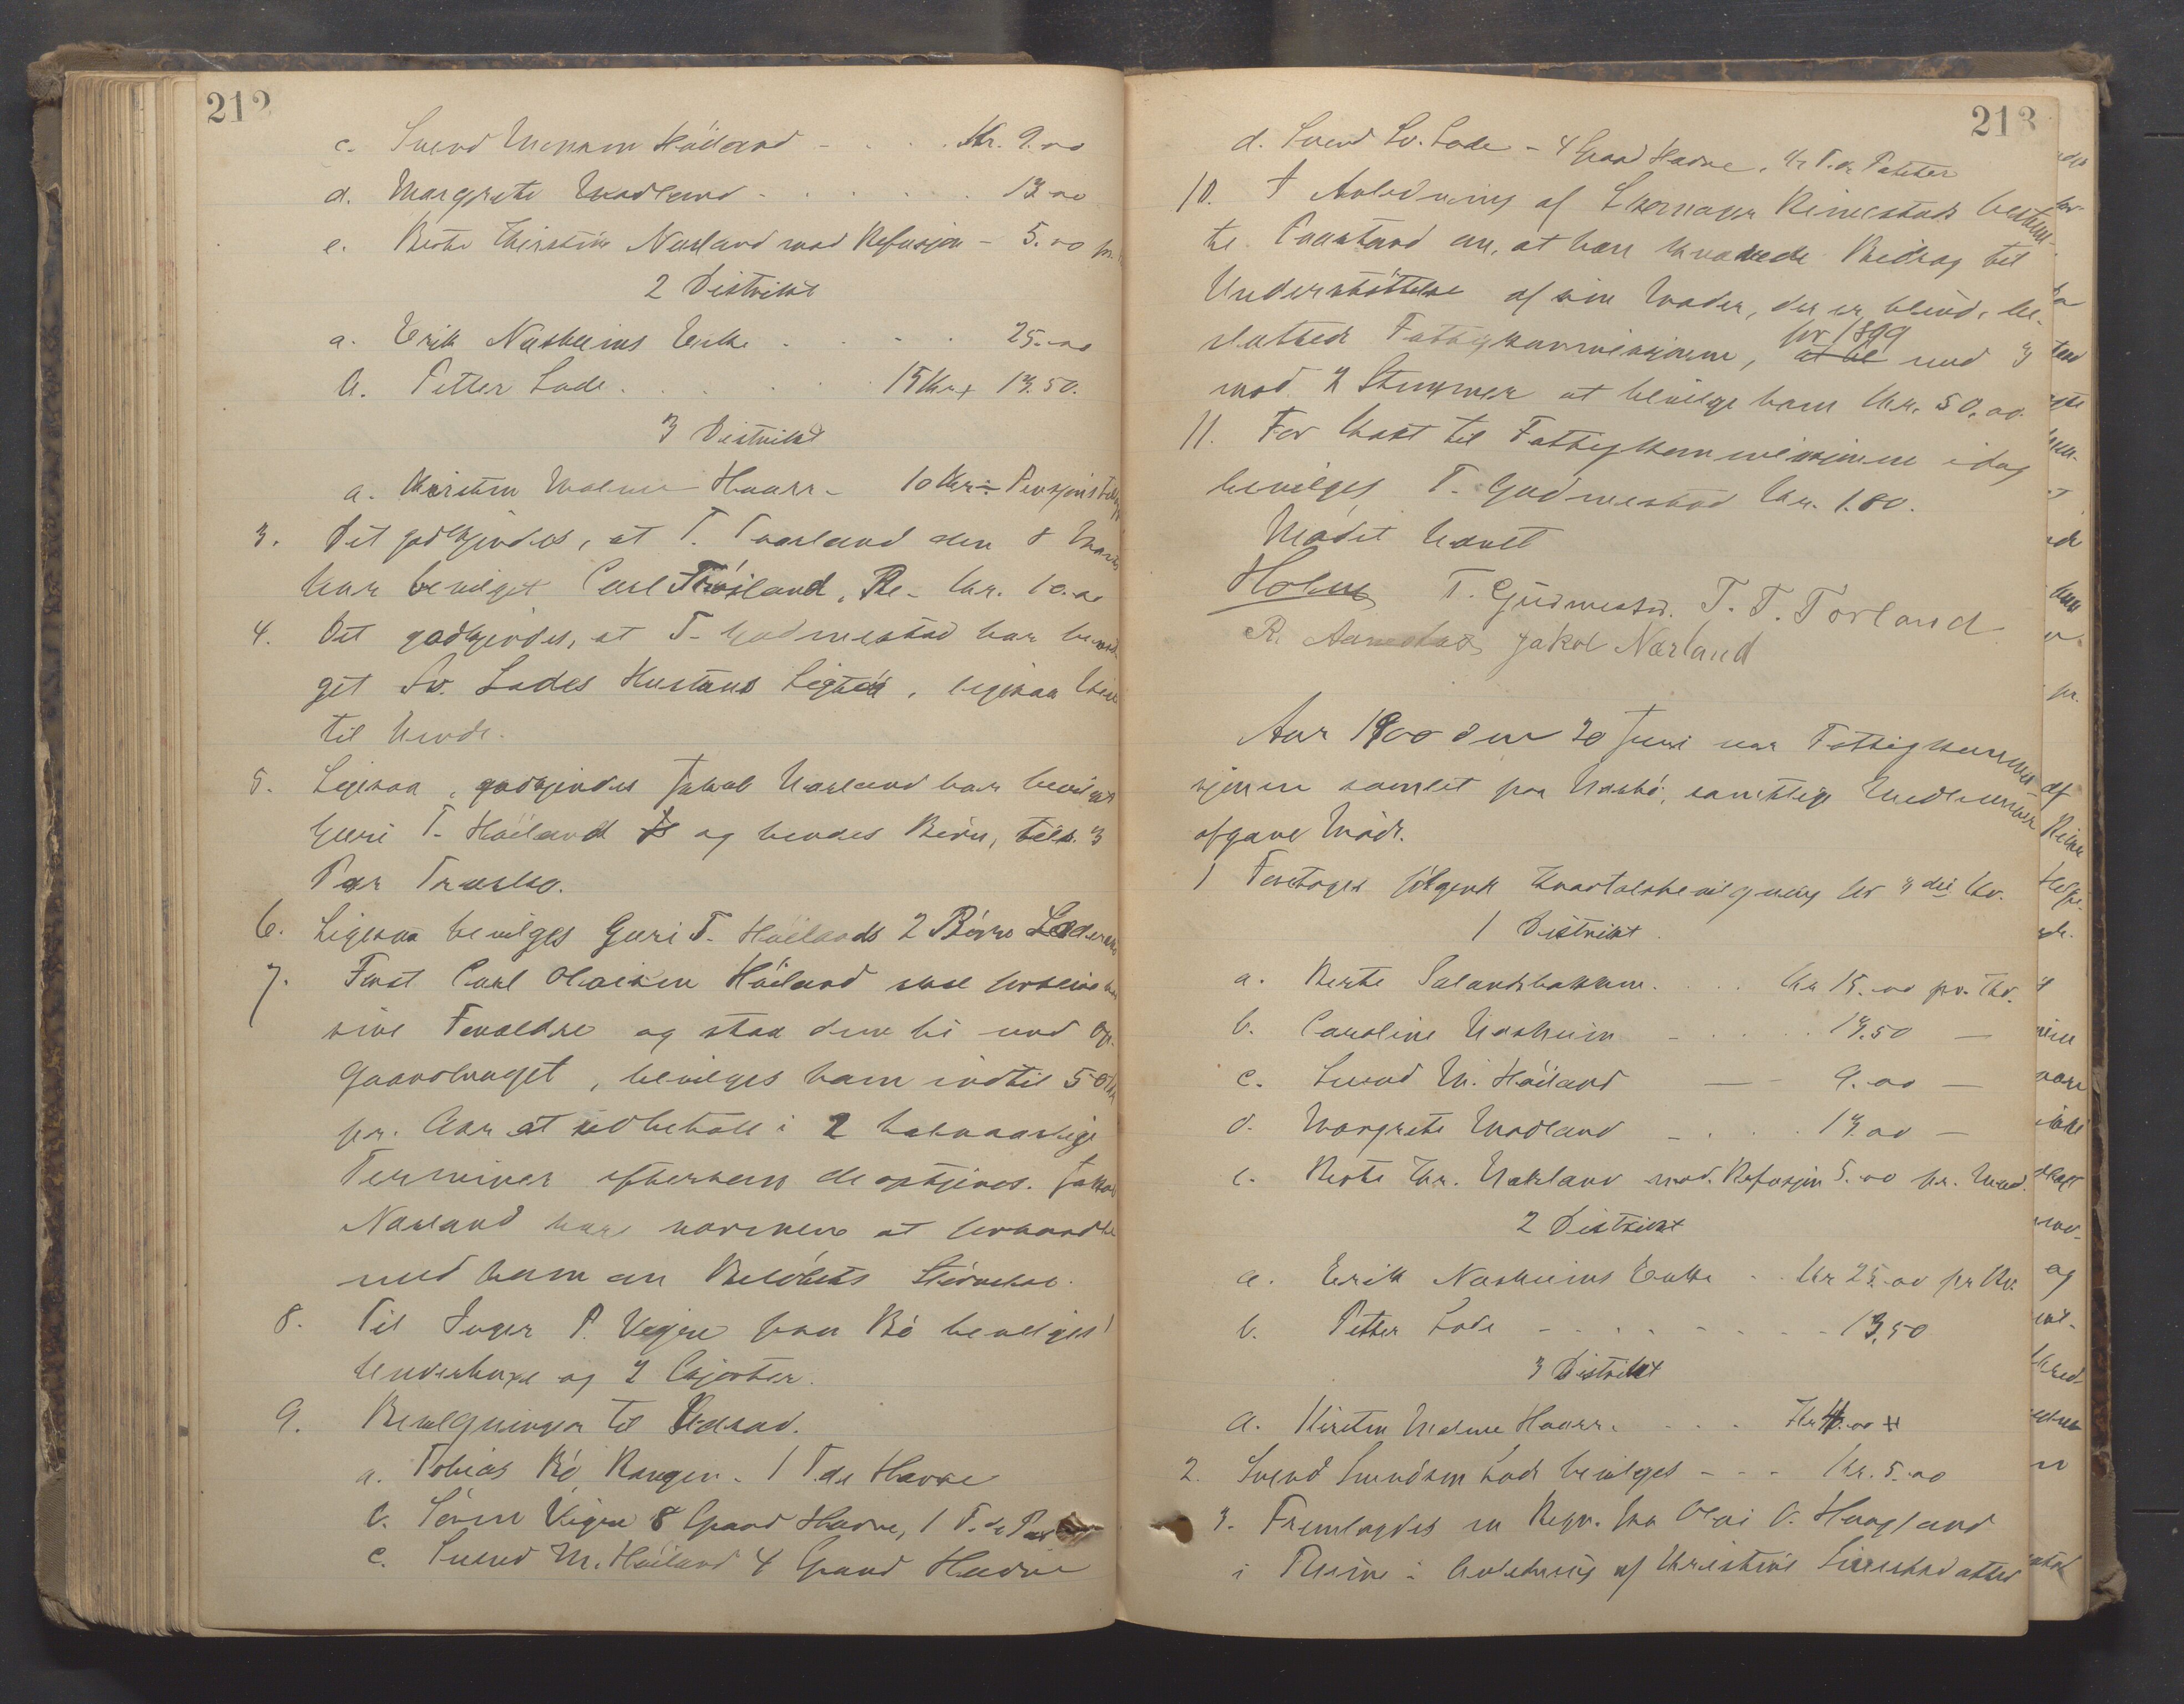 212
c. Svend Monsen Höiland - . . . Kr. 9.00
d. Margrete Madland - . . . . . 13.00
e. Berte Kirstine Nærland mod Refusjon - 5.00 pr.
2 Distrikt
a. Erik Næsheims Enke . . . . 25.00
b. Petter Lode . . . . 15 Kr + 13.50.
3 Distrikt
a. Kirsten Malmer Haarr - 10 Kr
3. Det godkjendes, at T. Taarland den 8 Marts
har bevilget Carl Höiland, Re- Kr. 10.00
4. Det godkjendes, at T. Gudmestad har bevil-
get Sv. Lodes Hustrus Ligtöi, ligesaa
til hende.
5. Ligesaa godkjendes Jakob Nærland har bevilget
Guri T. Höiland og hendes Börn, tils. 3
Par Træsko.
6. Ligesaa bevilges Guri T. Höilands 2 Börn
7. Forat Carl Olaisen Höiland skal forbeina
sine Forældre og staa dem bi med Op-
Gaardbruget, bevilges ham indtil 50 Kr
pr. Aar at udbetale i 2 halvaarlige
Terminer eftersom de optjenes. Jakob
Nærland har at forhandle
med ham om Belöbets Störrelse.
8. Til Inger P. Vigre paa Bö bevilges 1
Underkaxe og 2 Skjorter.
9. Bevilgninger til Udsæd.
a. Tobias Bö, Haugen. 1 Tde Havre
b. Sören Vigre 8 Spand Havre, 1 Tde
c. Svend M. Höiland 4 Spand Havre
213
d. Svend Sv. Lode - 4 Spand Havre, ½ Tde Poteter
10. I Anledning af Rimestads bestem-
te Paastand om, at han krævede Bidrag til
Understöttelse af sin Moder, der er blind, be-
sluttede Fattigkommissjonen, at be for 1899 med 3
mod 2 Stemmer at bevilge ham Kr. 50.00.
11. For Kost til Fattigkommissjonen idag
bevilges T. Gudmestad Kr. 1.80.
Mödet hævet
Holm T. Gudmestad. T. T. Torland
R. Aanestad Jakob Nærland
Aar 1900 den 20 Juni var Fattigkommis-
sjonen samlet paa Nærbö, samtlige Medlemmer
afgave Möde.
1 Foretoges fölgende Kvartalsbevilgning for 3die Kv.
1 Distrikt.
a. Berte Salandsbakken. . . . Kr 15.00 pr. Kv.
b. Caroline Næsheim - . . . 13.50 —
c. Svend M. Höiland — - 9.00 —
d. Margrete Madland - . . . 13.00 —
e. Berte Kr. Nærland mod. Refusjon 5.00 pr. Mnd.
2 Distrikt
a. Erik Næsheims Enke . . Kr 25.00 pr Kv.
b. Petter Lode - - - - - - - 13,50
3 Distrikt
a. Kirsten Malme Haarr. . . .
2. Svend Svendsen Lode bevilges - - - Kr. 5.00
3. Fremlagdes en Regn. fra Olai O. Haugland
i Anledning af Kristine